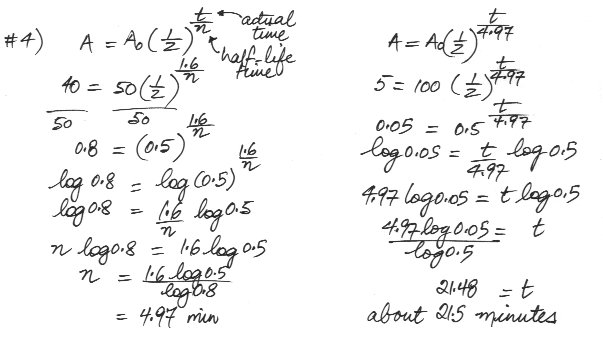 #4) A = A₀(1/2)^(t/n) ← actual time
half-life time
40 = 50(1/2)^(1.6/n)
50 50
0.8 = (0.5)^(1.6/n)
log 0.8 = log (0.5)^(1.6/n)
log 0.8 = 1.6/n log 0.5
n log 0.8 = 1.6 log 0.5
n = 1.6 log 0.5 / log 0.8
= 4.97 min
A = A₀(1/2)^(t/4.97)
5 = 100 (1/2)^(t/4.97)
0.05 = 0.5^(t/4.97)
log 0.05 = t/4.97 log 0.5
4.97 log 0.05 = t log 0.5
4.97 log 0.05 / log 0.5 = t
21.48 = t
about 21.5 minutes